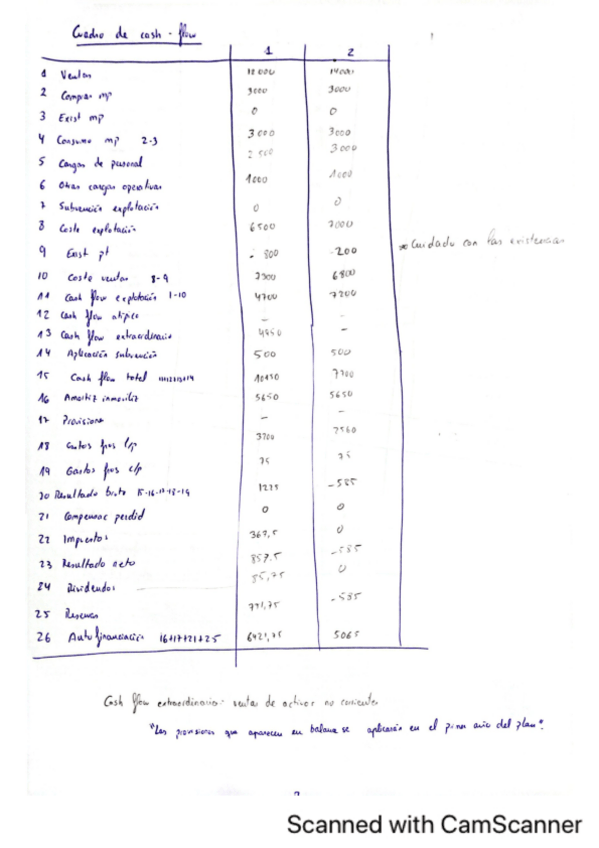 Cuadro de cash-flow
1 2
1 Ventas 12000 14000
2 Compras mp 3000 3000
3 Exist mp 0 0
4 Consumo mp 2-3 3000 3000
5 Cargas de personal 2500 3000
6 Otras cargas operativas 1000 1000
7 Subvención explotación 0 0
8 Coste explotación 6500 7000
9 Exist pt - 800 -200 Cuidado con las existencias
10 Coste ventas 8-9 6800
11 Cash flow explotación 1-10 4700 7200
12 Cash flow atípico -
13 Cash flow extraordinario 4850 -
14 Aplicación subvención 500 500
15 Cash flow total 7700
16 Amortiz inmoviliz 5650 5650
17 Provisiones - -
18 Gastos fros l/p 3700 2560
19 Gastos fros c/p 75 75
20 Resultado bruto 15-16-17-18-19 1225 -585
21 Compensac perdid 0 0
22 Impuestos 367,5 0
23 Resultado neto 857,5 -585
24 Dividendos 85,75 0
25 Reservas 771,75 -585
26 Autofinanciación 16+17+21+25 6421,75 5065
Cash flow extraordinario: ventas de activos no corrientes
"Las provisiones que aparecen en balance se aplicarán en el primer año del plan".
Scanned with CamScanner